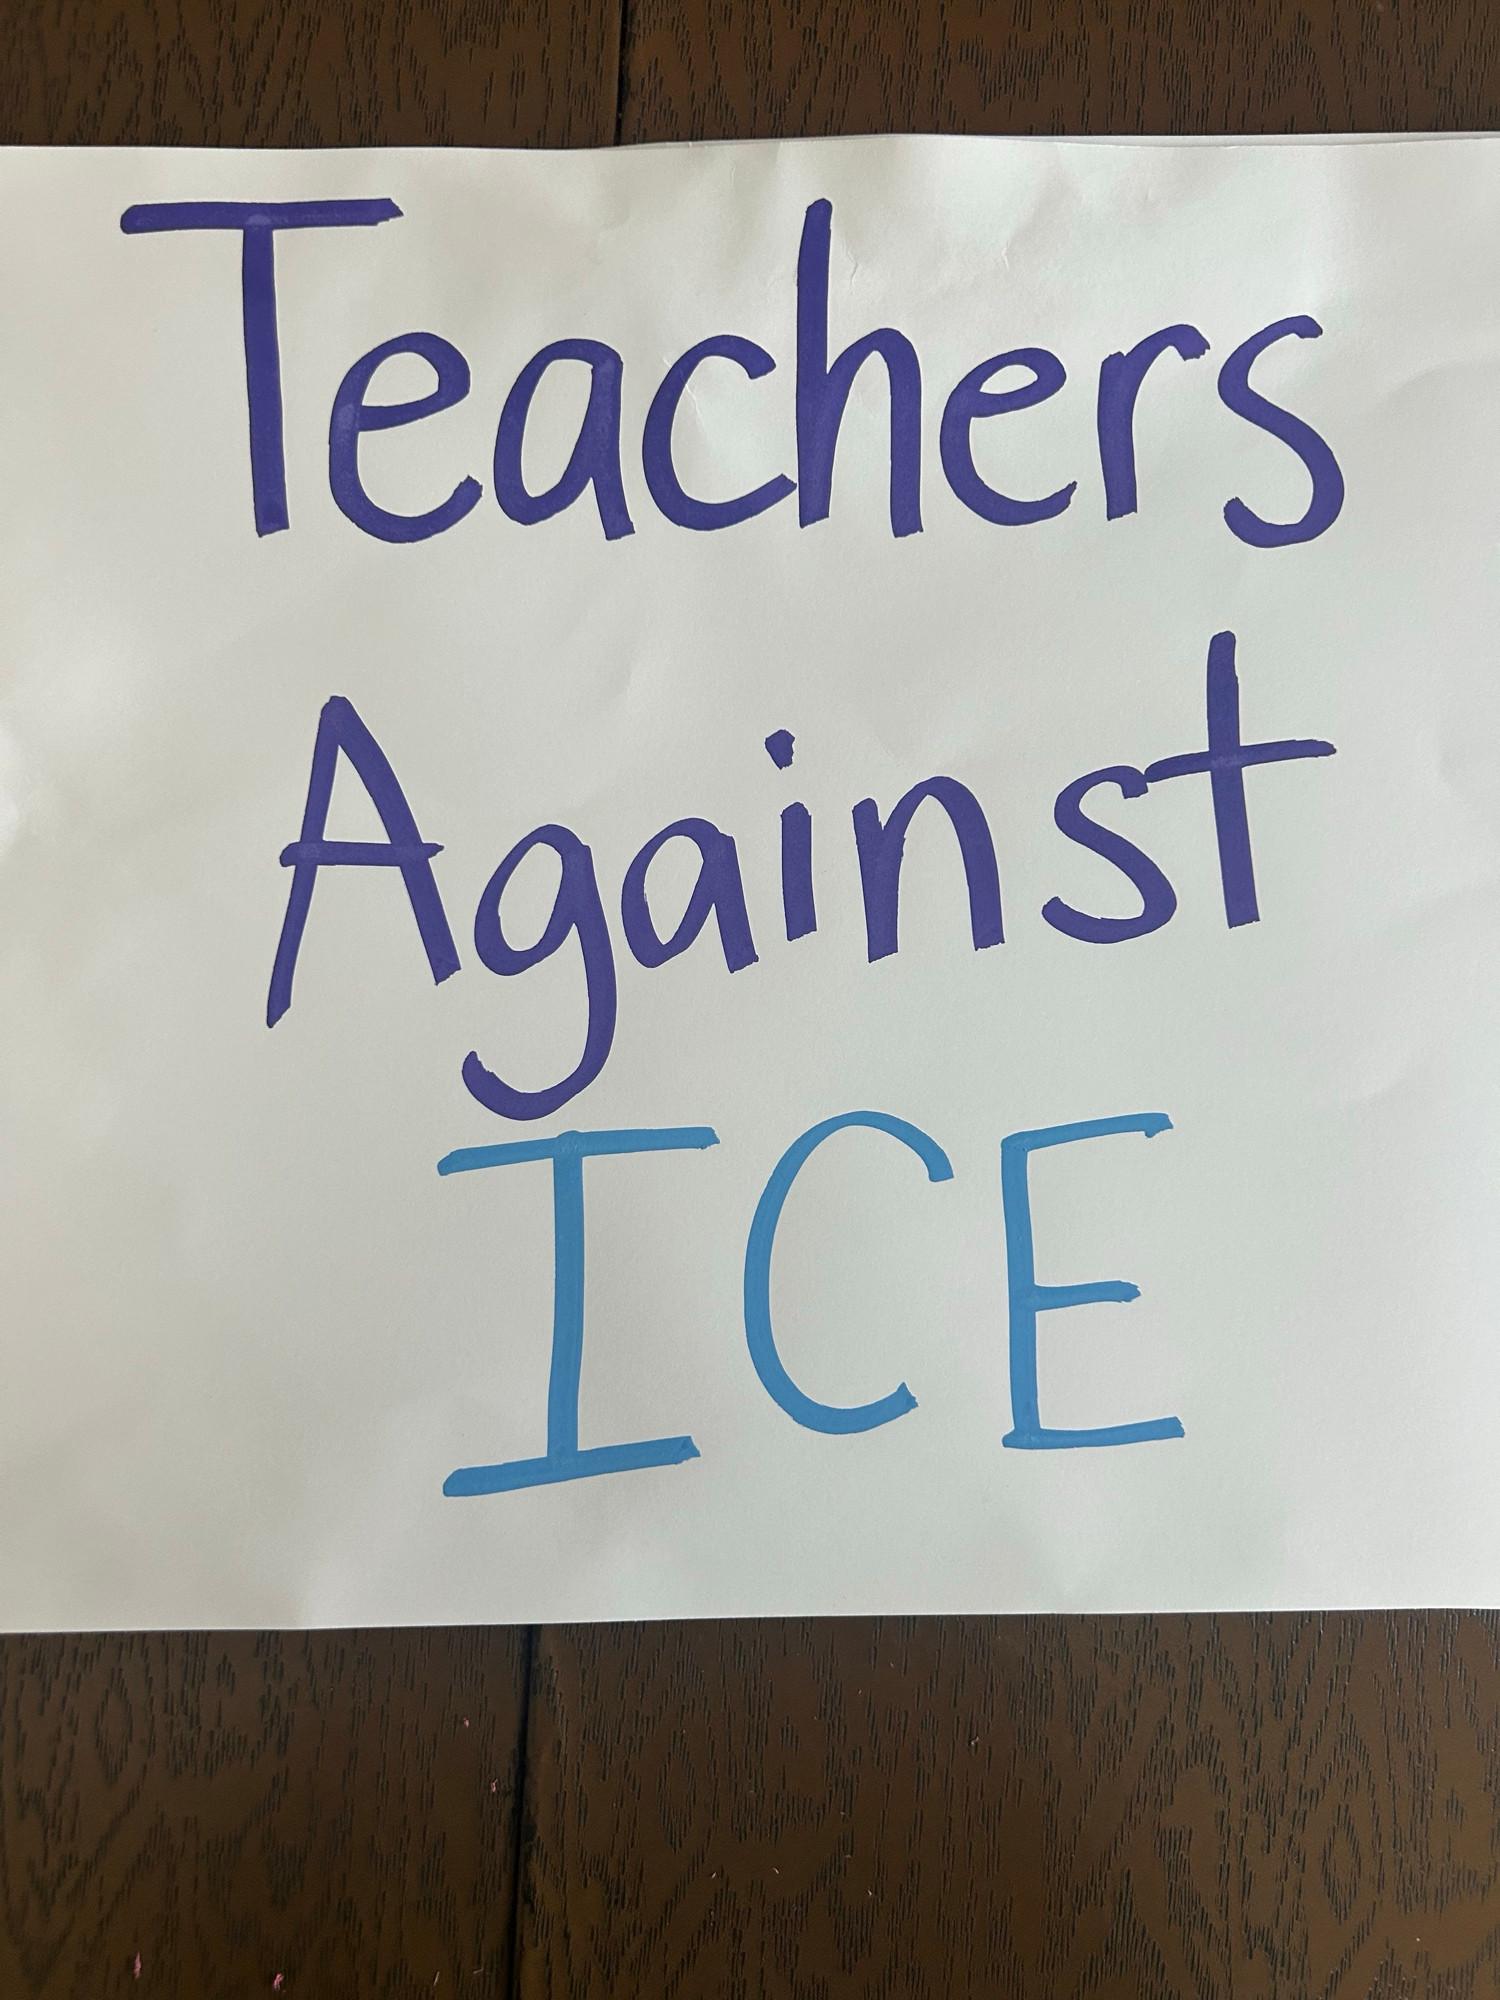 Teachers
Against
ICE